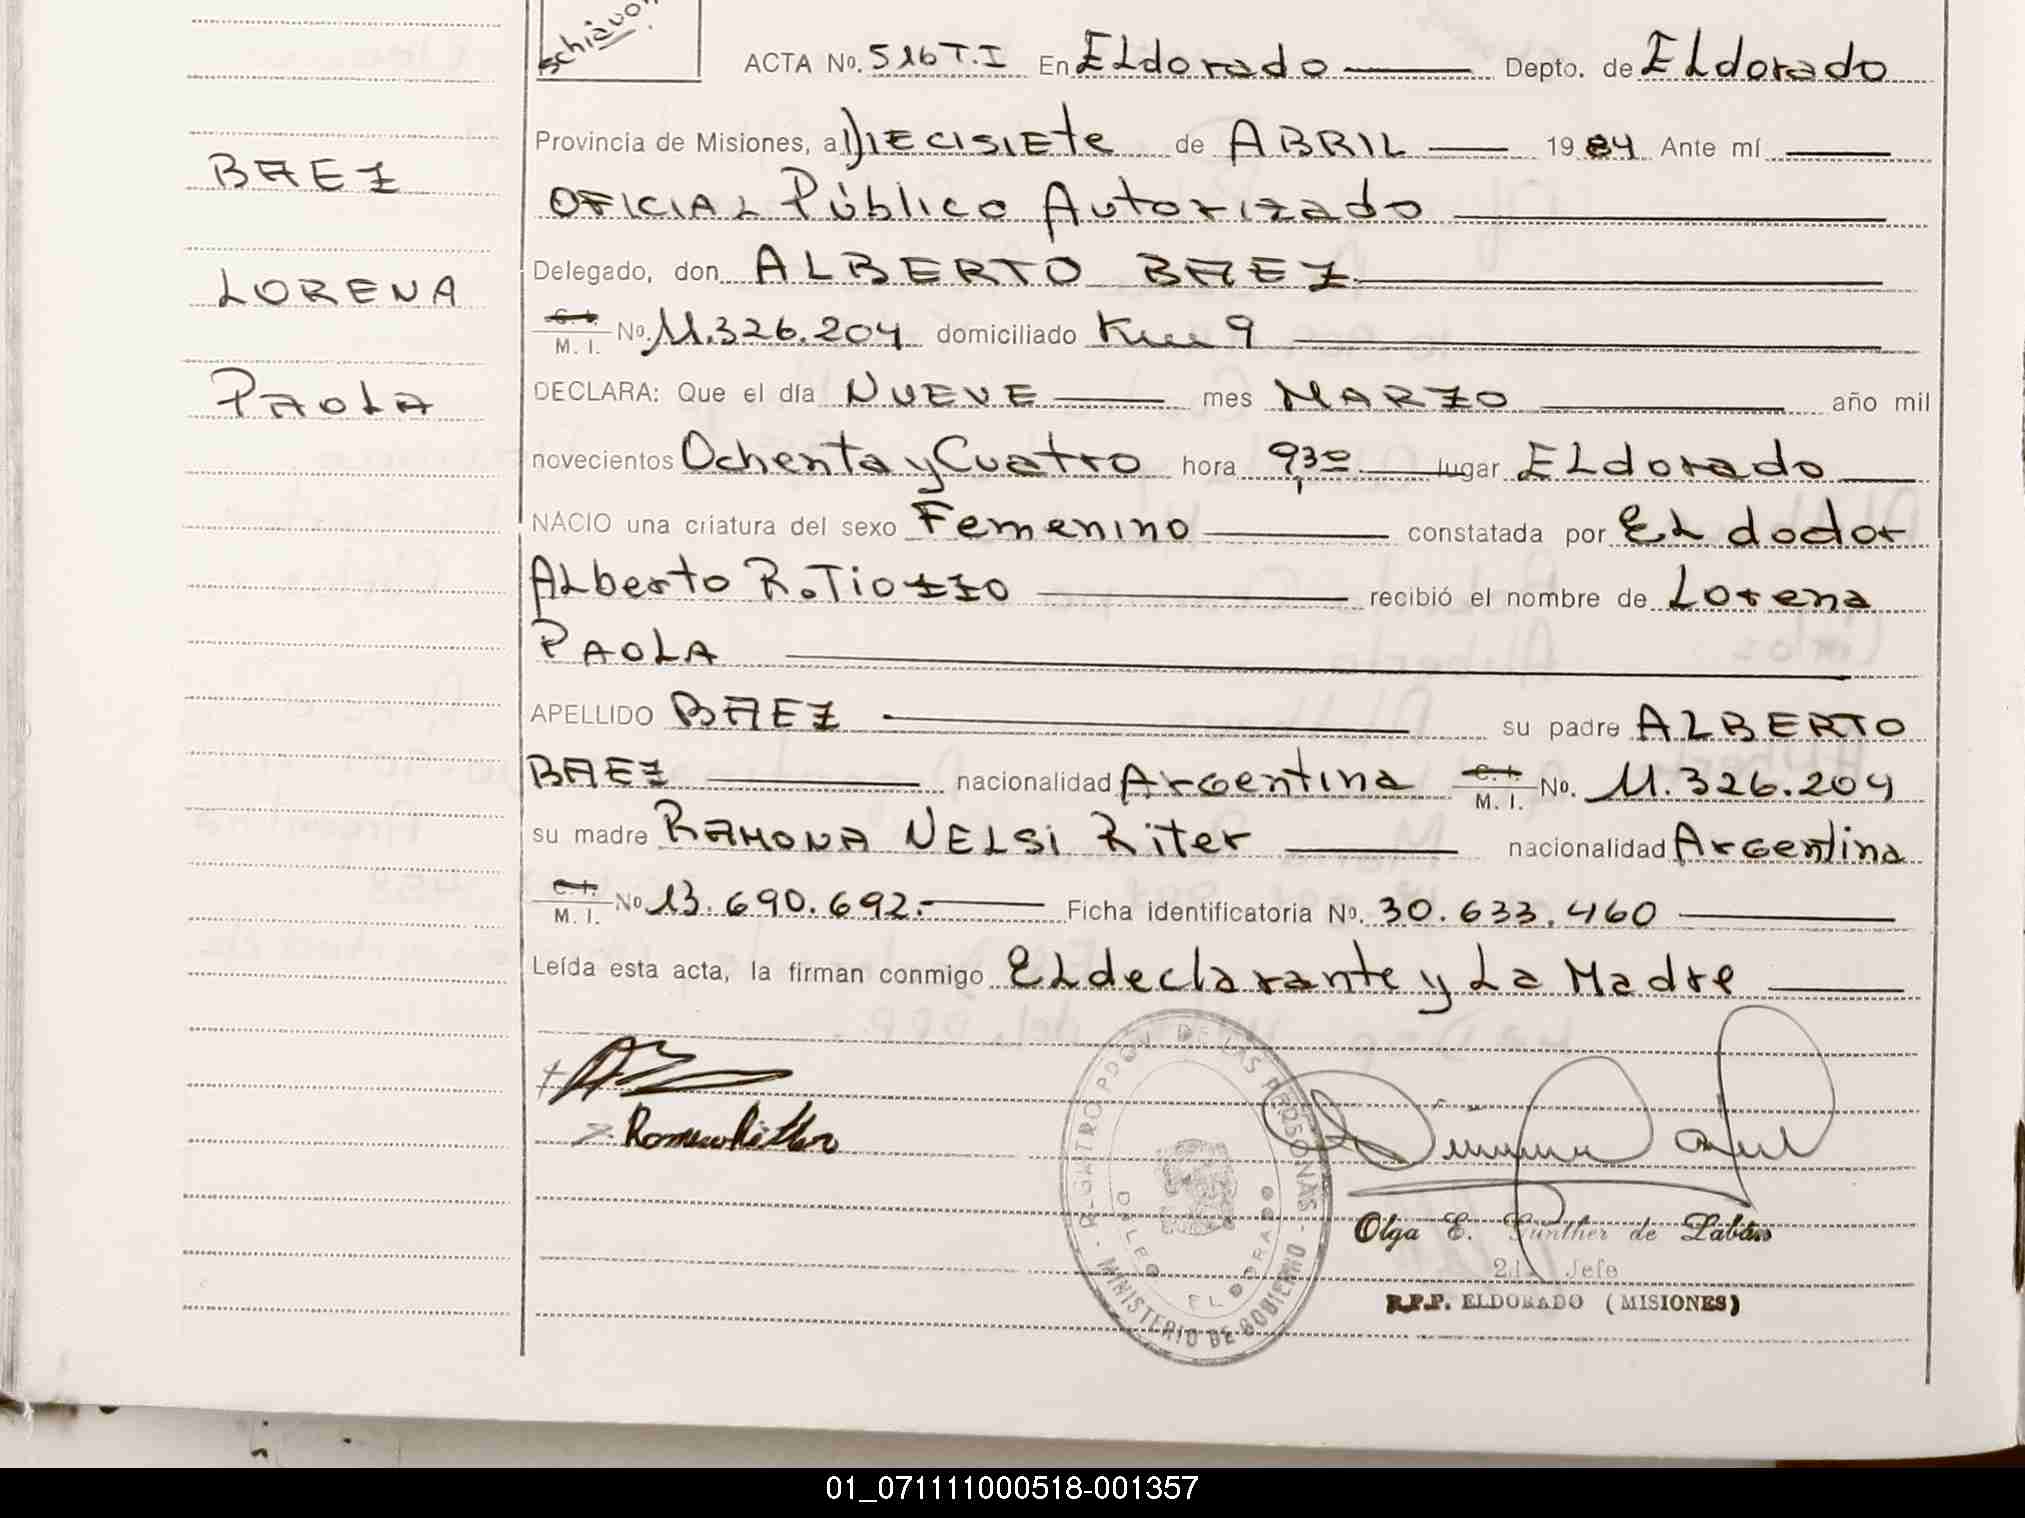 schiavon
ACTA No. 516 T.I En ELdorado Depto. de ELdorado
Provincia de Misiones, a DIECISIETE de ABRIL 1984 Ante mí
OFICIAL Público Autorizado
BAEZ
Delegado, don ALBERTO BAEZ
LORENA
C. I. M. I. No. 11.326.204 domiciliado Km 9
PAOLA
DECLARA: Que el día NUEVE mes MARZO año mil
novecientos Ochenta y Cuatro hora 9,30 lugar ELdorado
NACIO una criatura del sexo Femenino constatada por EL doctor
ALberto R. Tiozzo recibió el nombre de Lorena
PAOLA
APELLIDO BAEZ su padre ALBERTO
BAEZ nacionalidad Argentina C. I. M. I. No. 11.326.204
su madre RAMONA NELSi Riter nacionalidad Argentina
C. I. M. I. No 13.690.692.- Ficha identificatoria No. 30.633.460
Leída esta acta, la firman conmigo EL declarante y La Madre
DE LAS PERSONAS - MINISTERIO DE GOBIERNO -
ELDORADO
Olga E. Günther de Labán
2da Jefe
R.P.P. ELDORADO (MISIONES)
01_071111000518-001357